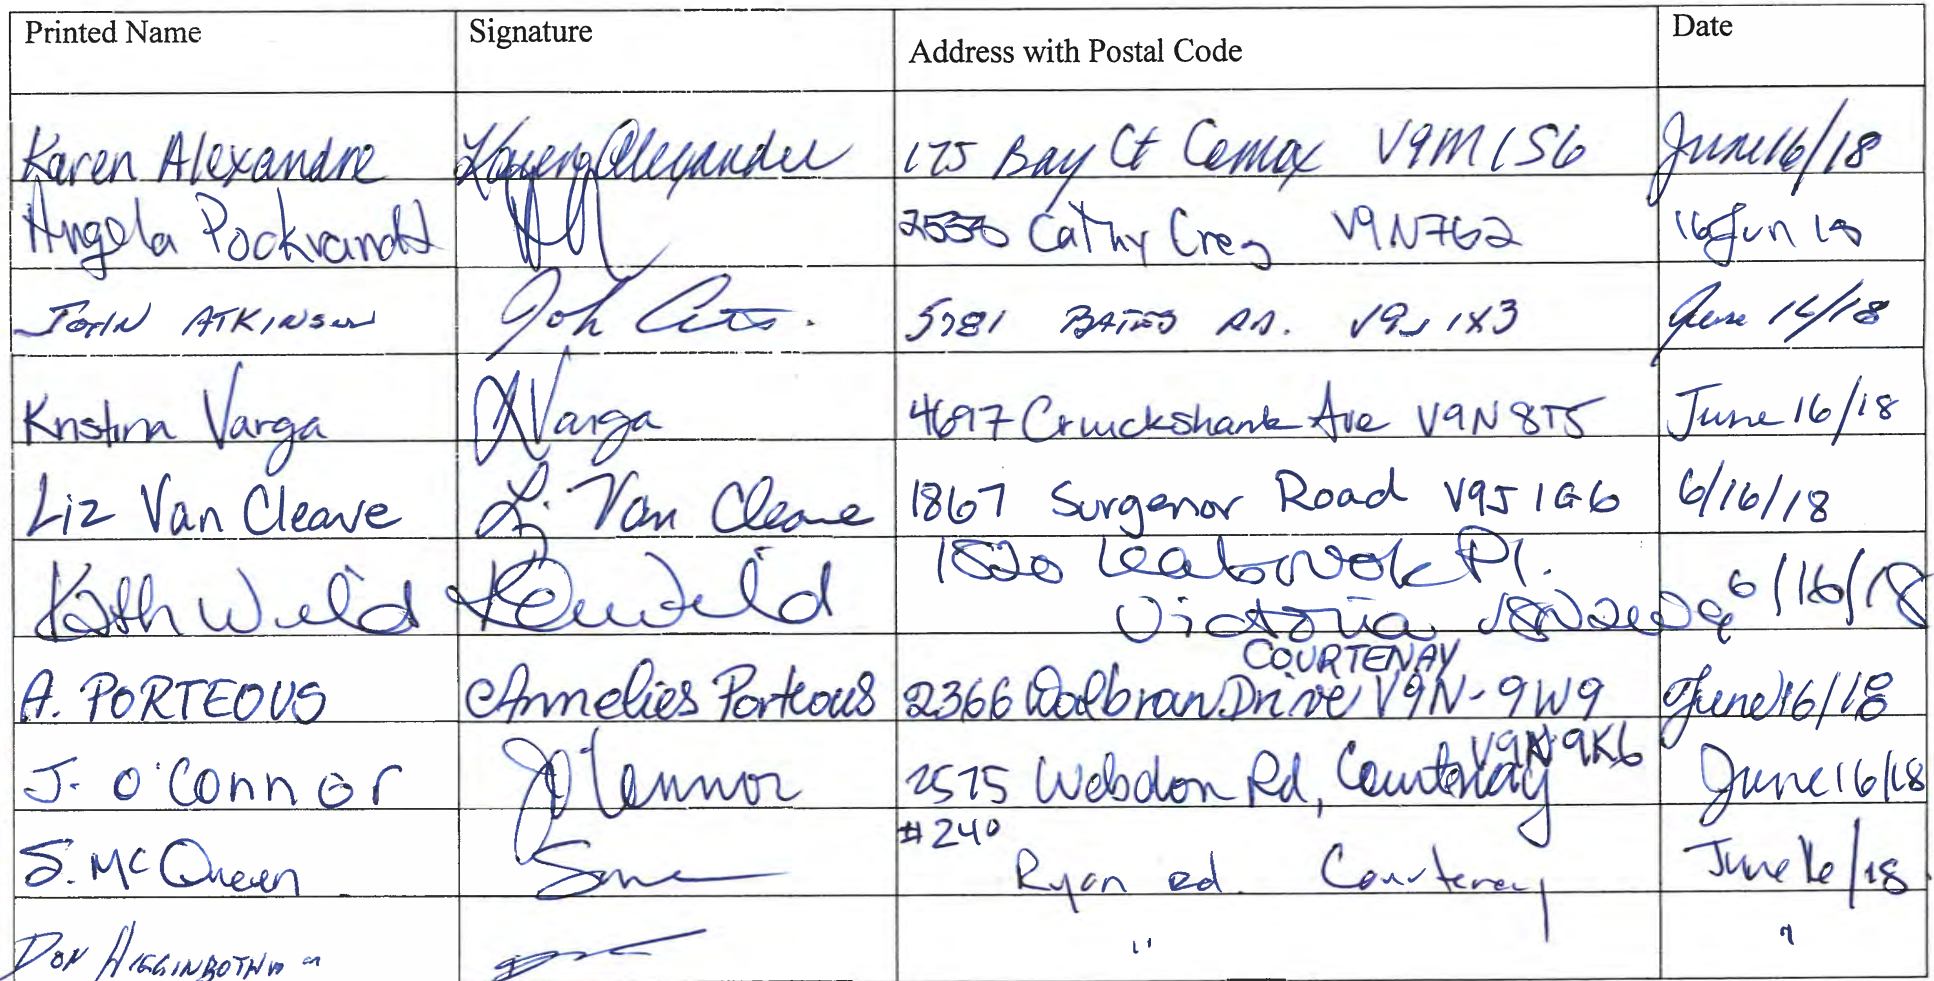 Printed Name Signature Address with Postal Code Date
Karen Alexandre Karen Alexander 175 Bay Ct Comox V9M 1S6 June 16/18
Angela Pockrandt Cathy Cres V9N7G2 16 Jun 18
JOHN ATKINSON John 5781 BATES RD. V9J 1X3 June 16/18
Kristina Varga KVarga 4697 Cruickshank Ave V9N 8T5 June 16/18
Liz Van Cleave Liz Van Cleave 1867 Surgenor Road V9J 1G6 6/16/18
Kath Wild 1820 Leabrook Pl. 6/16/18
Victoria
COURTENAY
A. PORTEOUS Annelies Porteous 2366 Walbran Drive V9N-9W9 June 16/18
V9N 9K6
J. O'Connor JO'Connor 2575 Webdon Rd, Courtenay June 16/18
#240
S. McQueen Ryan rd. Courtenay June 16/18
DON HIGGINBOTHAM " "